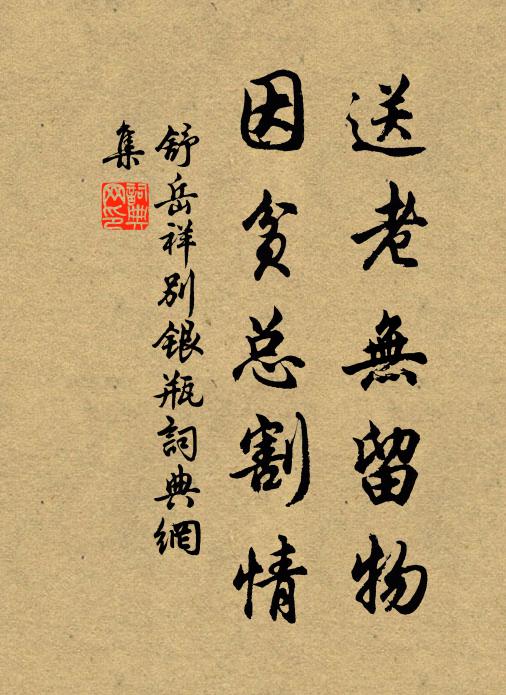 送老無留物
因貧总割情
舒岳祥別銀瓶詞典網
集
詞典
网印